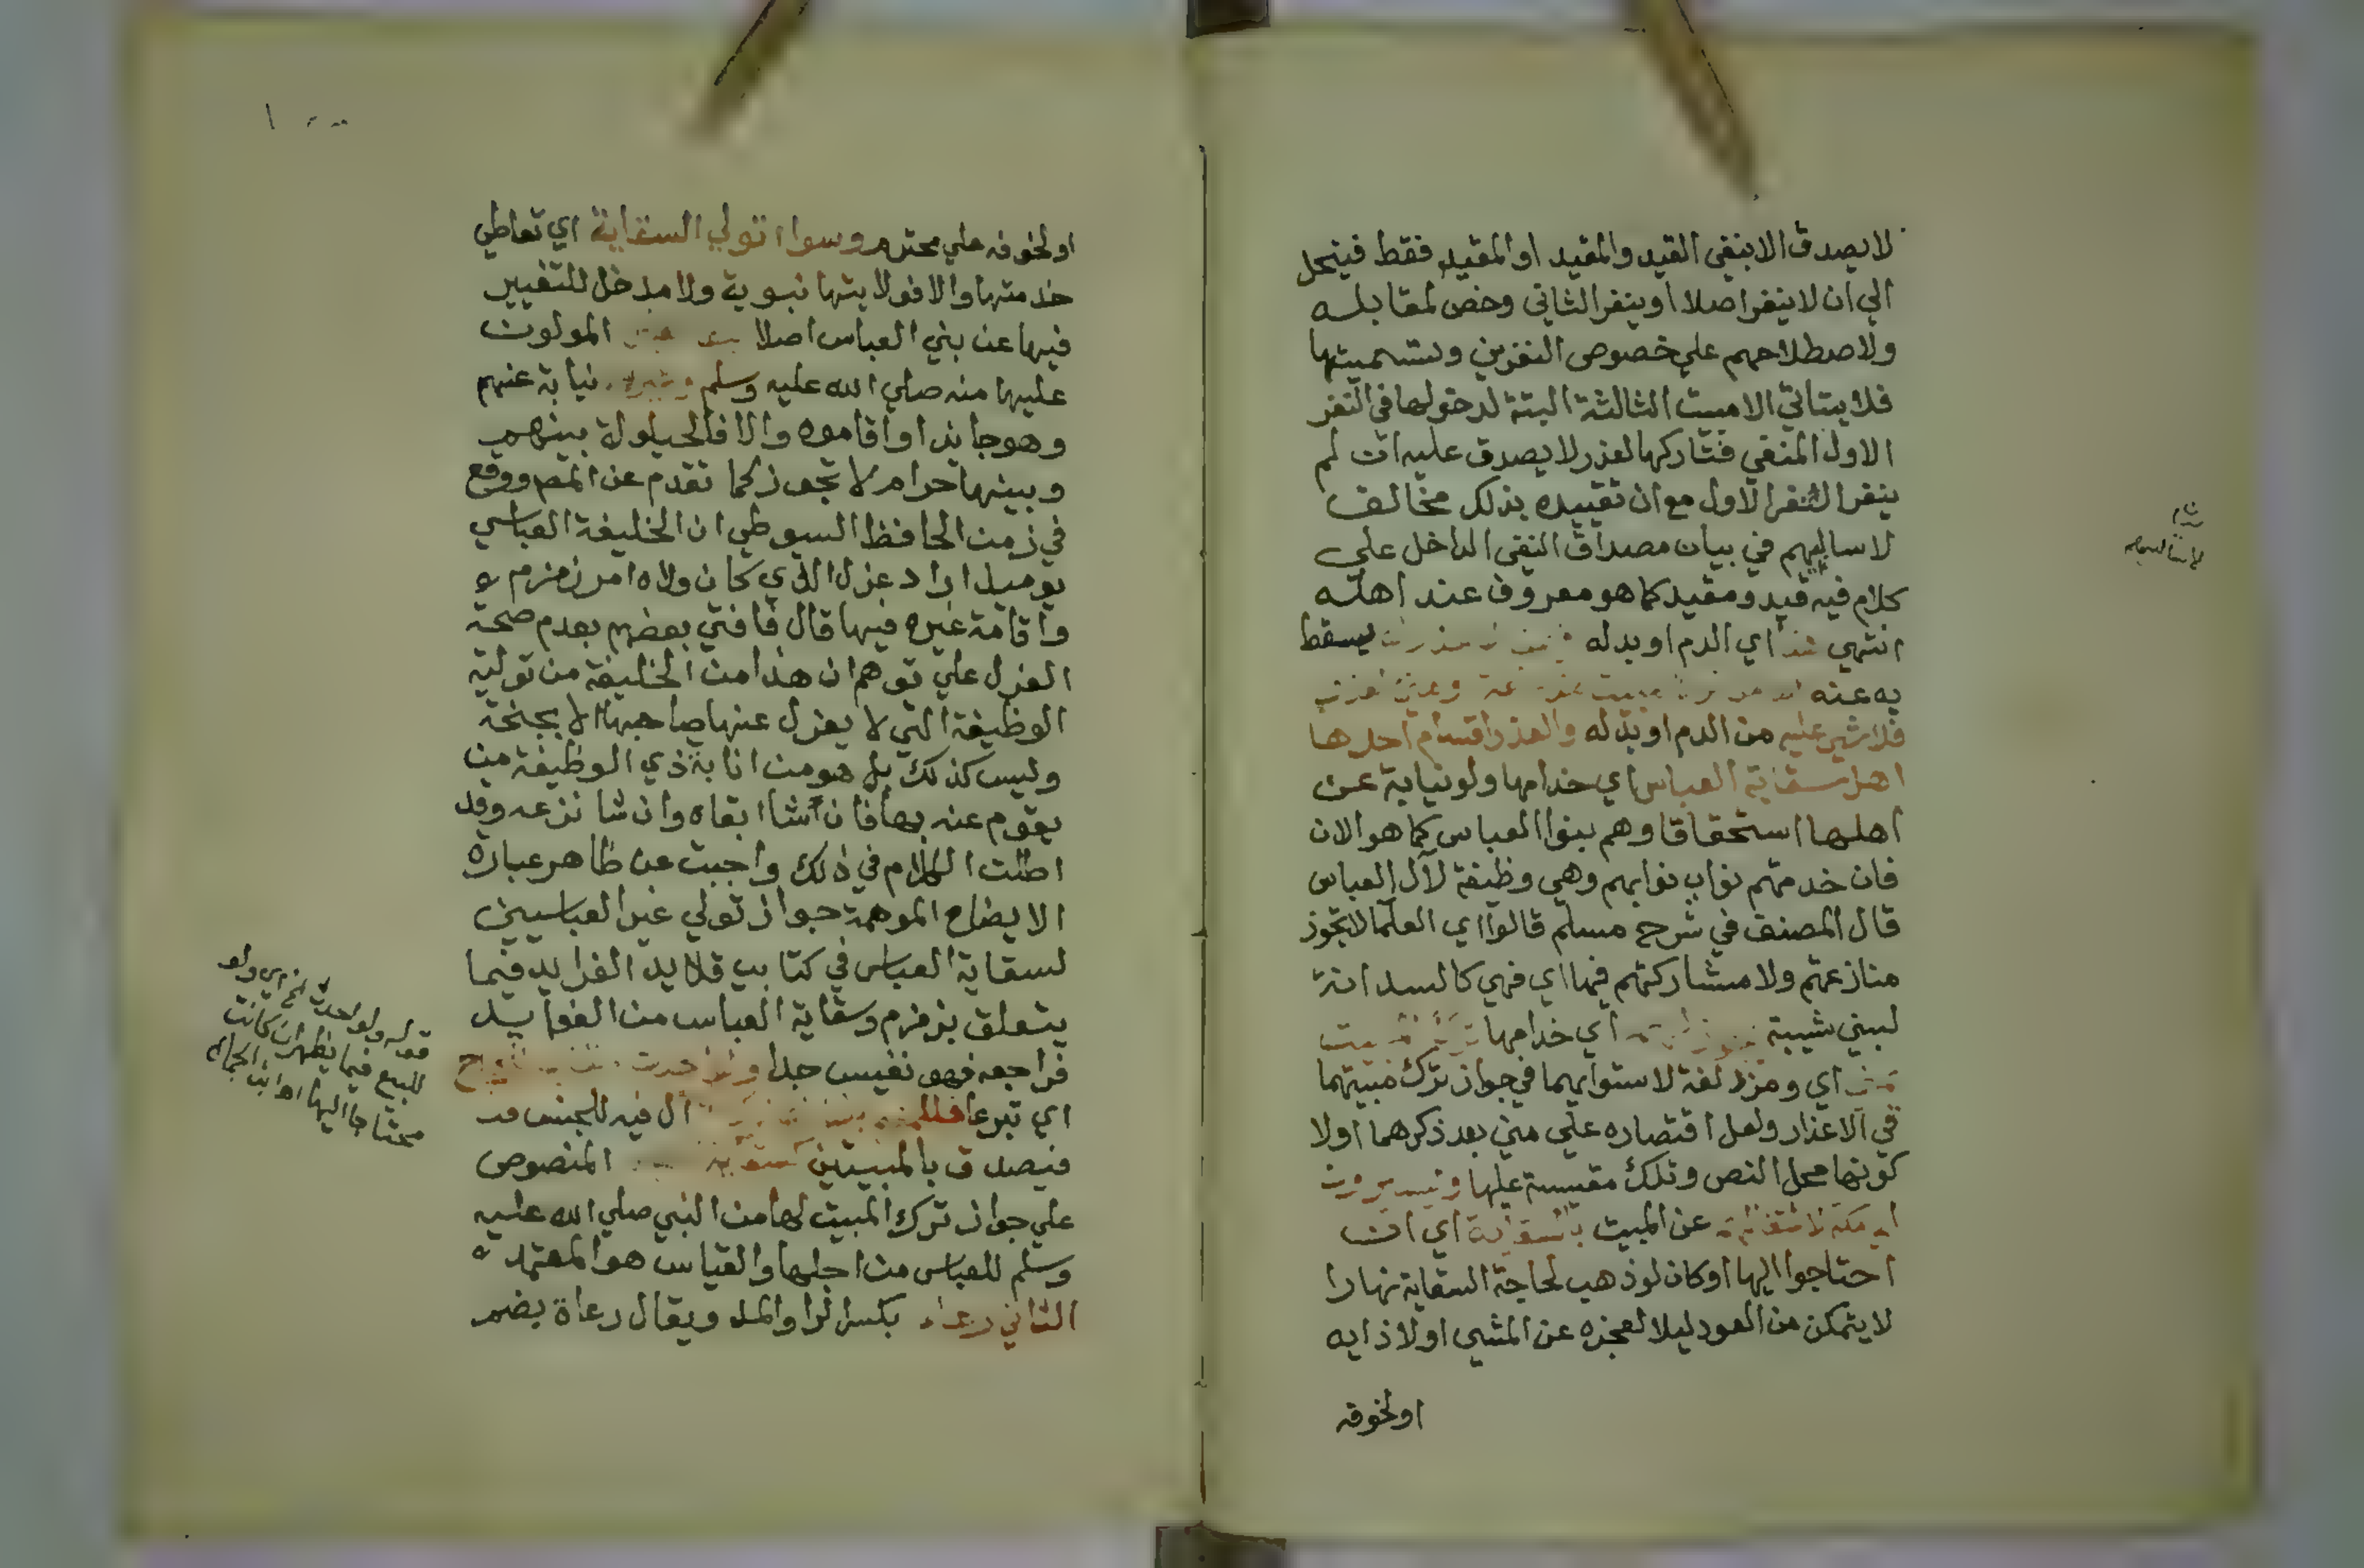 لا يصدق الا بنفي القيد والمقيد او المقيد فقط فينحل
الي ان لا ينفر اصلا او ينفر الثاني وخص لمقابلـه
ولاصطلاحهم علي خصوص النفرين وتسميتها
فلا يتاتي الا مبيت الثالثة البتة لدخولها في النفر
الاول المنفي فتاركها لعذر لا يصدق عليه ان لم
ينفر النفر الاول مع ان تقييده بذلك مخالف
لاساليبهم في بيان مصداق النفي الداخل علي
كلام فيه قيد ومقيد كما هو معروف عند اهله
انتهي اي الدم او بدله يسقط
به عنه
فلا شي عليه من الدم او بدله والعذر اقسام احدها
اهل سقاية العباس اي خدامها ولو نيابة عن
اهلها استحقاقا وهم بنوا العباس كما هو الان
فان خدمتهم نواب نوابهم وهي وظيفة لآل العباس
قال المصنف في شرح مسلم قالوا اي العلما لا تجوز
منازعتهم ولا مشاركتهم فيها اي فهي كالسدانة
لبني شيبة اي خدامها
اي ومزدلفة لاستوايهما في جواز ترك مبيتهما
في الاعذار ولعل اقتصاره علي مني بعد ذكرهما اولا
كونها محل النص وتلك مقيسة عليها
عن المبيت بالسقاية اي ان
احتاجوا اليها او كان لو ذهب لحاجة السقاية نهارا
لا يتمكن من العود ليلا لعجزه عن المشي او لا ذايه
او لخوفه
او لخوفه علي محترم وسوا تولي السقاية اي تعاطي
خدمتها والا فولايتها نبوية ولا مدخل للتغيير
فيها عن بني العباس اصلا المولون
عليها منه صلي الله عليه وسلم نيابة عنهم
وهو جايز او اقاموه والا فالحيلولة بينهم
وبينها حرام لا تجوز كما تقدم عن المصـ ووقع
في زمن الحافظ السيوطي ان الخليفة العباسي
يوميذ اراد عزل الذي كان ولاه امر زمزم
واقامة غيره فيها قال فافتي بعضهم بعدم صحة
العزل علي توهم ان هذا من الخليفة من تولية
الوظيفة التي لا يعزل عنها صاحبها الا بجنحة
وليس كذلك بل هو من انابة ذي الوظيفة من
يقوم عنه بها فان شا ابقاه وان شا نزعه وقد
اطلت الكلام في ذلك واجبت عن ظاهر عبارة
الايضاح الموهمة جواز تولي غير العباسيين
لسقاية العباس في كتابي قلايد الفرايد فيما
يتعلق بزمزم وسقاية العباس من الفوايد
فراجعه فهو نفيس جدا
اي تبرعا ال فيه للجنس
فيصدق بالمبيتين المنصوص
علي جواز ترك المبيت لها من النبي صلي الله عليه
وسلم للعباس من اجلها والقياس هو المعتمد
الثاني رعاء بكسر الرا والمد ويقال رعاة بضم
قوله ولو احدثت الخ اي ولو
للبيع فيما يظهر ان كانت
محتاجا اليها